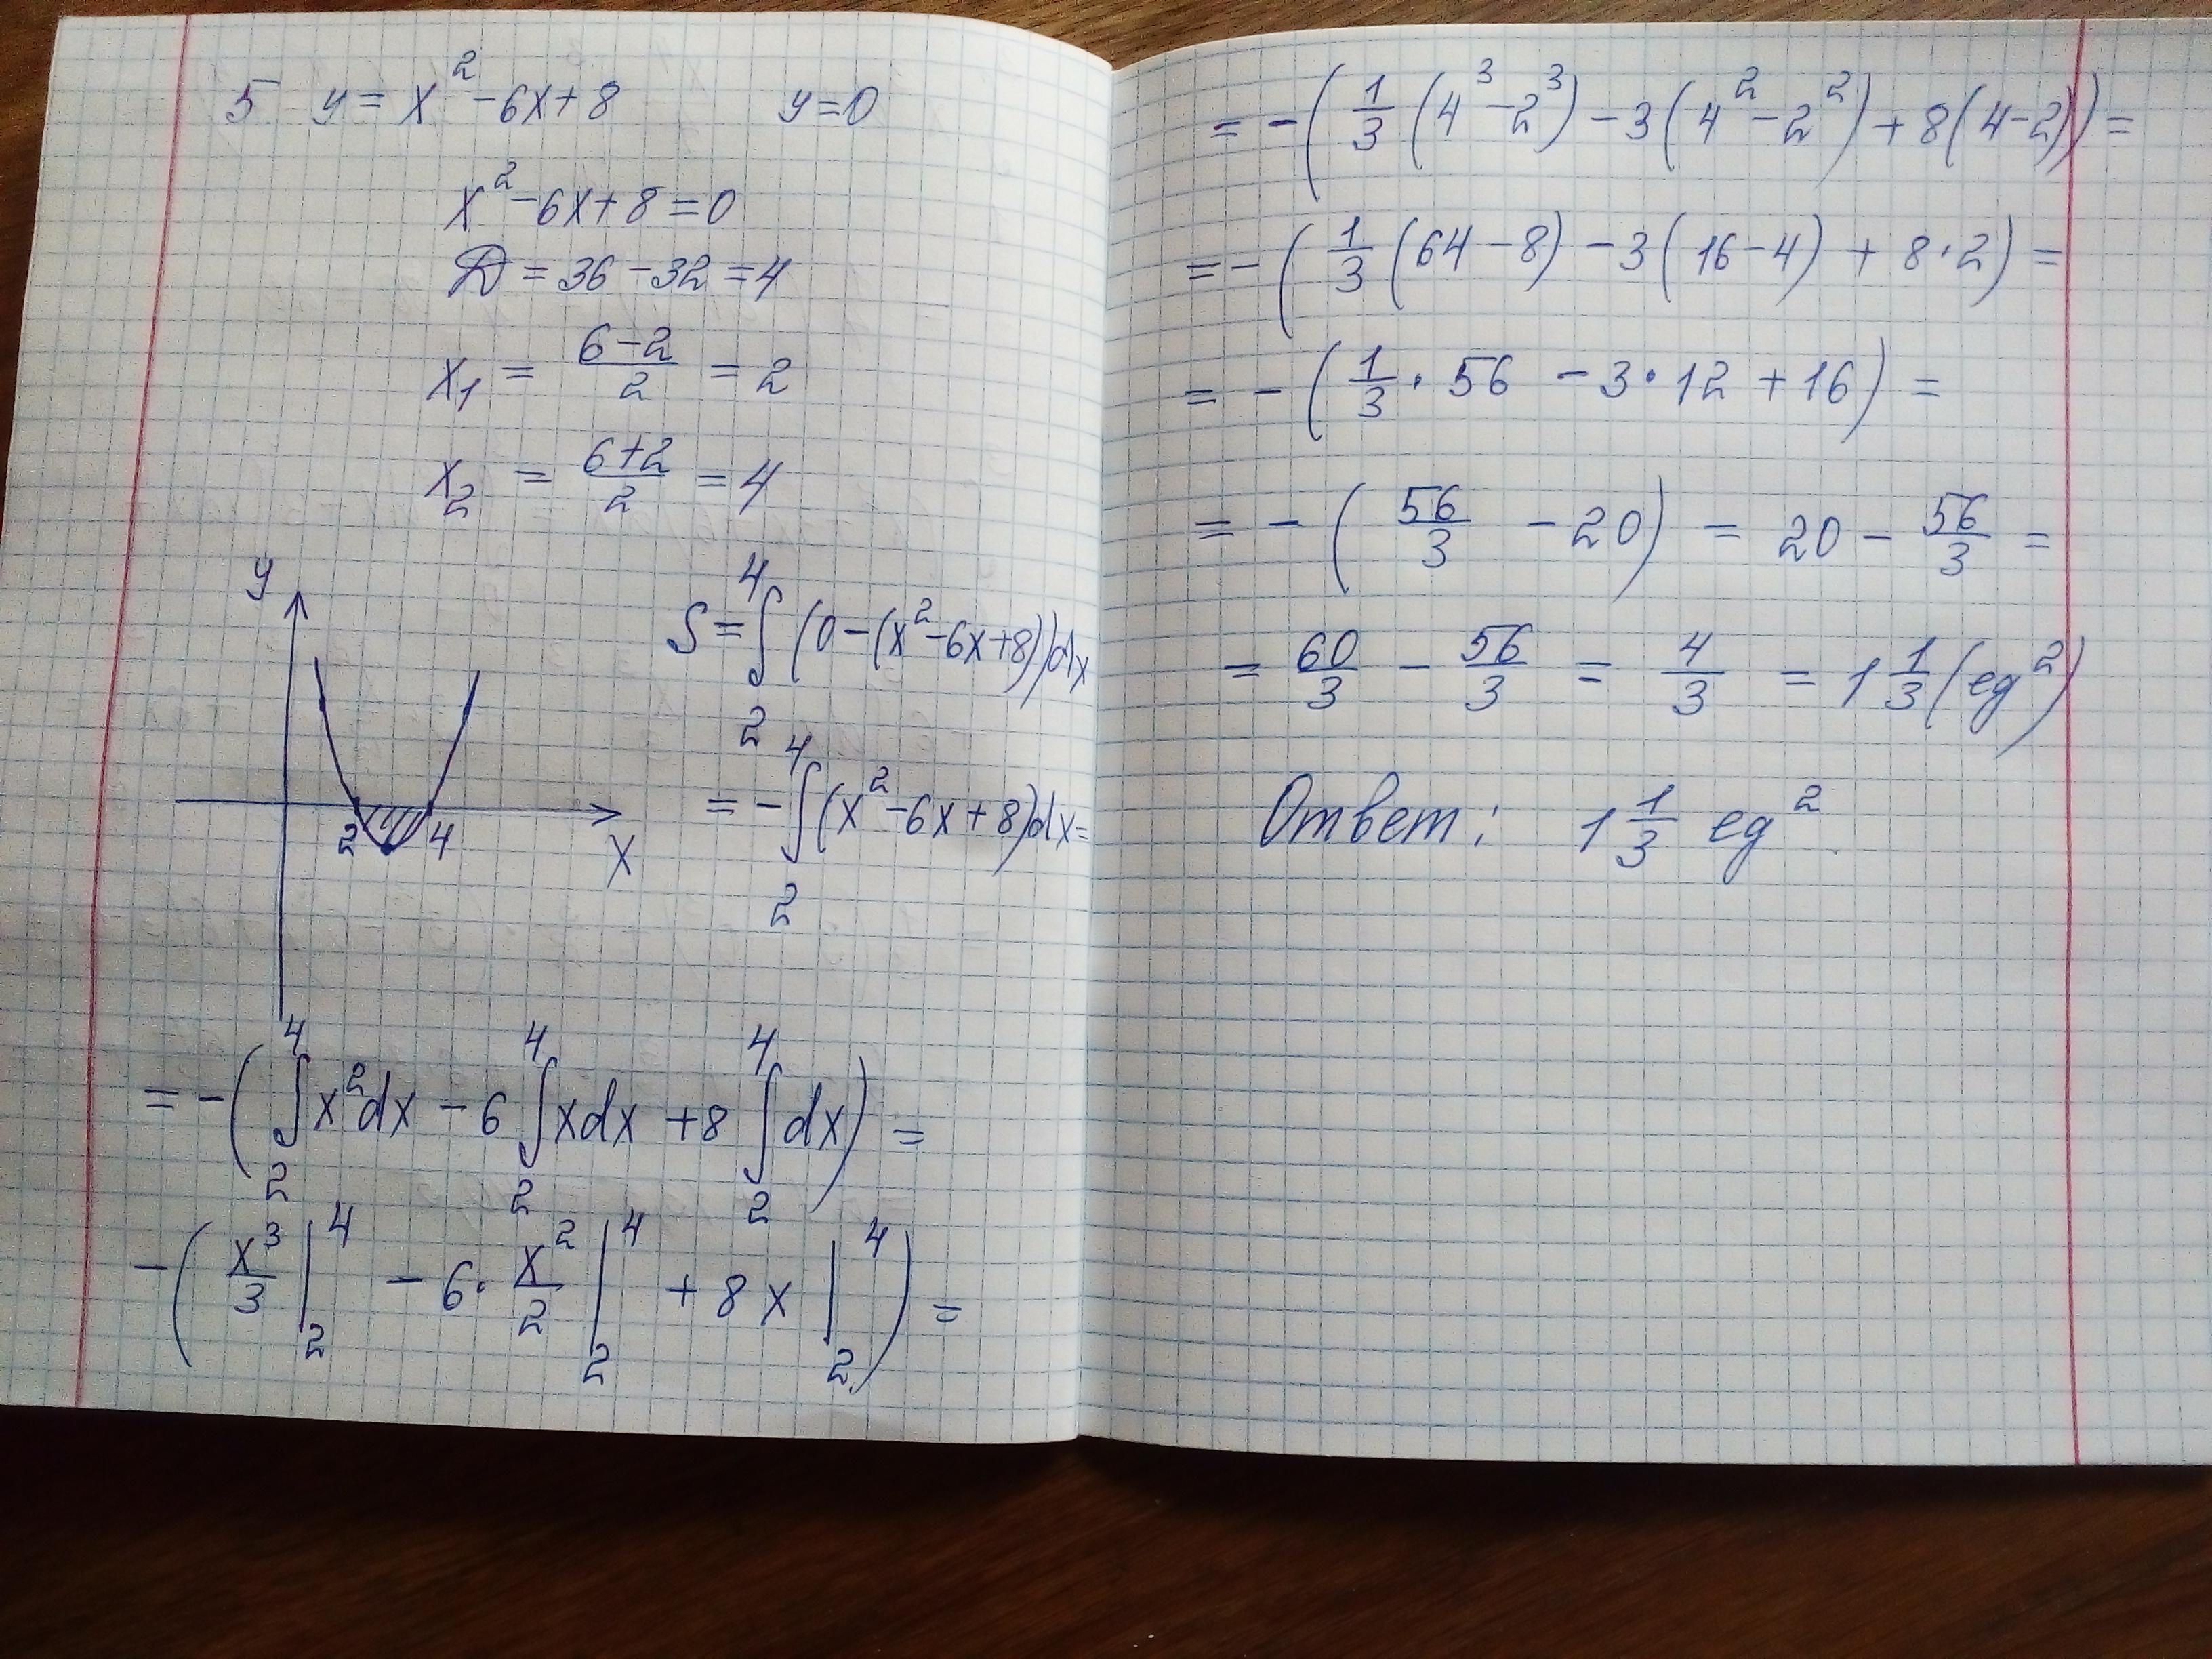 5 y = x² - 6x + 8 y = 0
x² - 6x + 8 = 0
D = 36 - 32 = 4
x₁ = (6 - 2)/2 = 2
x₂ = (6 + 2)/2 = 4
y
2 4 x
S = ∫₂⁴ (0 - (x² - 6x + 8)) dx
= - ∫₂⁴ (x² - 6x + 8) dx =
= - ( ∫₂⁴ x² dx - 6 ∫₂⁴ x dx + 8 ∫₂⁴ dx ) =
- ( x³/3 |₂⁴ - 6 · x²/2 |₂⁴ + 8x |₂⁴ ) =
= - ( 1/3 (4³ - 2³) - 3 (4² - 2²) + 8 (4 - 2) ) =
= - ( 1/3 (64 - 8) - 3 (16 - 4) + 8 · 2 ) =
= - ( 1/3 · 56 - 3 · 12 + 16 ) =
= - ( 56/3 - 20 ) = 20 - 56/3 =
= 60/3 - 56/3 = 4/3 = 1 1/3 (ед²)
Ответ: 1 1/3 ед²